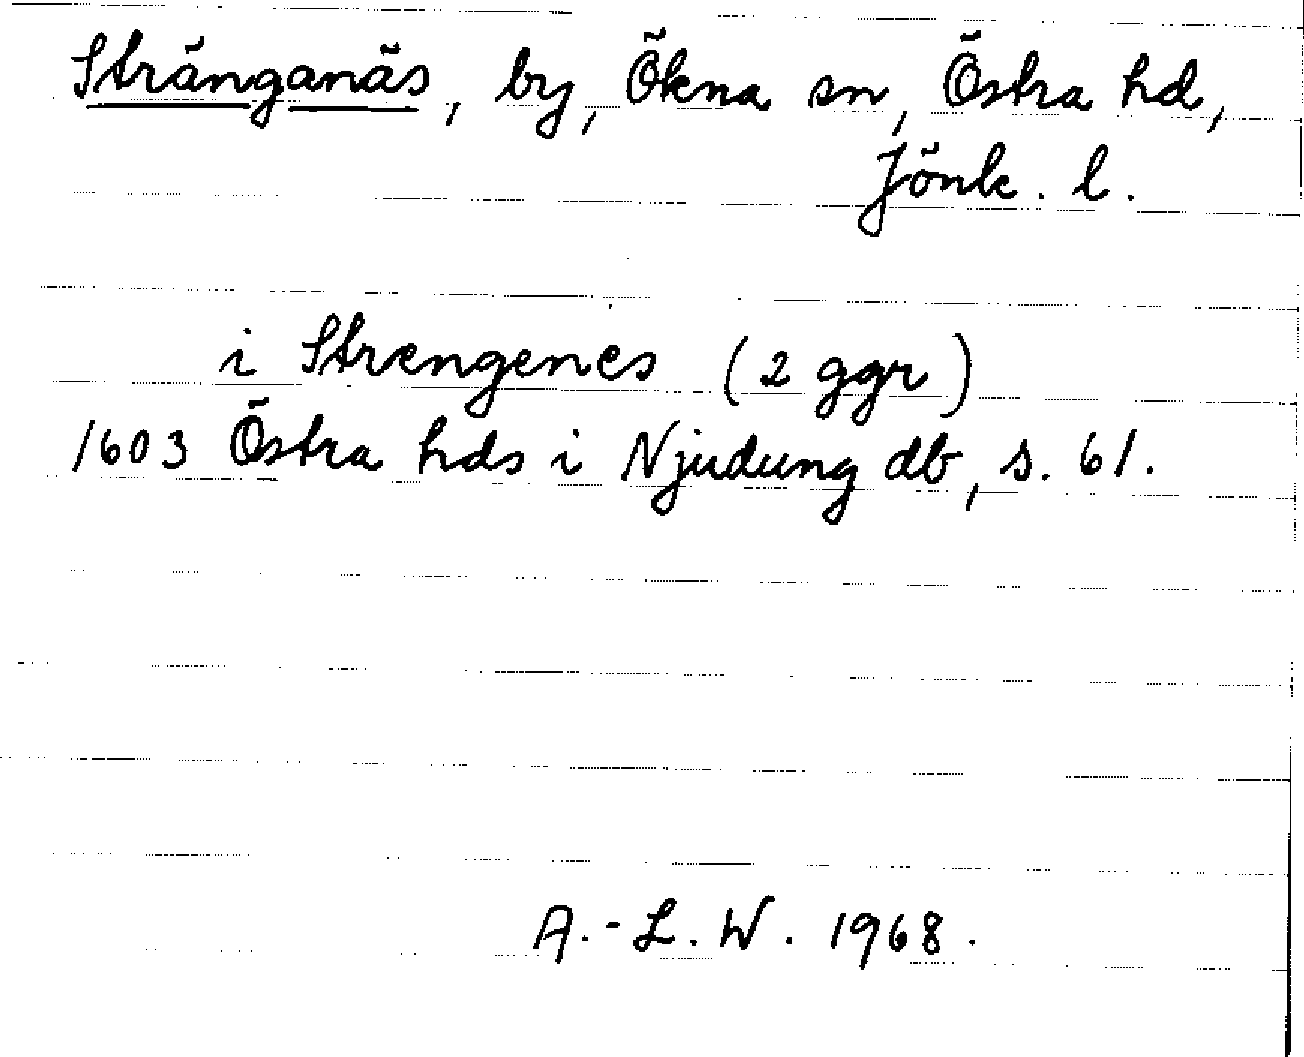 Stränganäs, by, Ökna sn, Östra hd,
Jönk. l.
i Strengenes (2 ggr)
1603 Östra hds i Njudung db, s. 61.
A.-L. W. 1968.